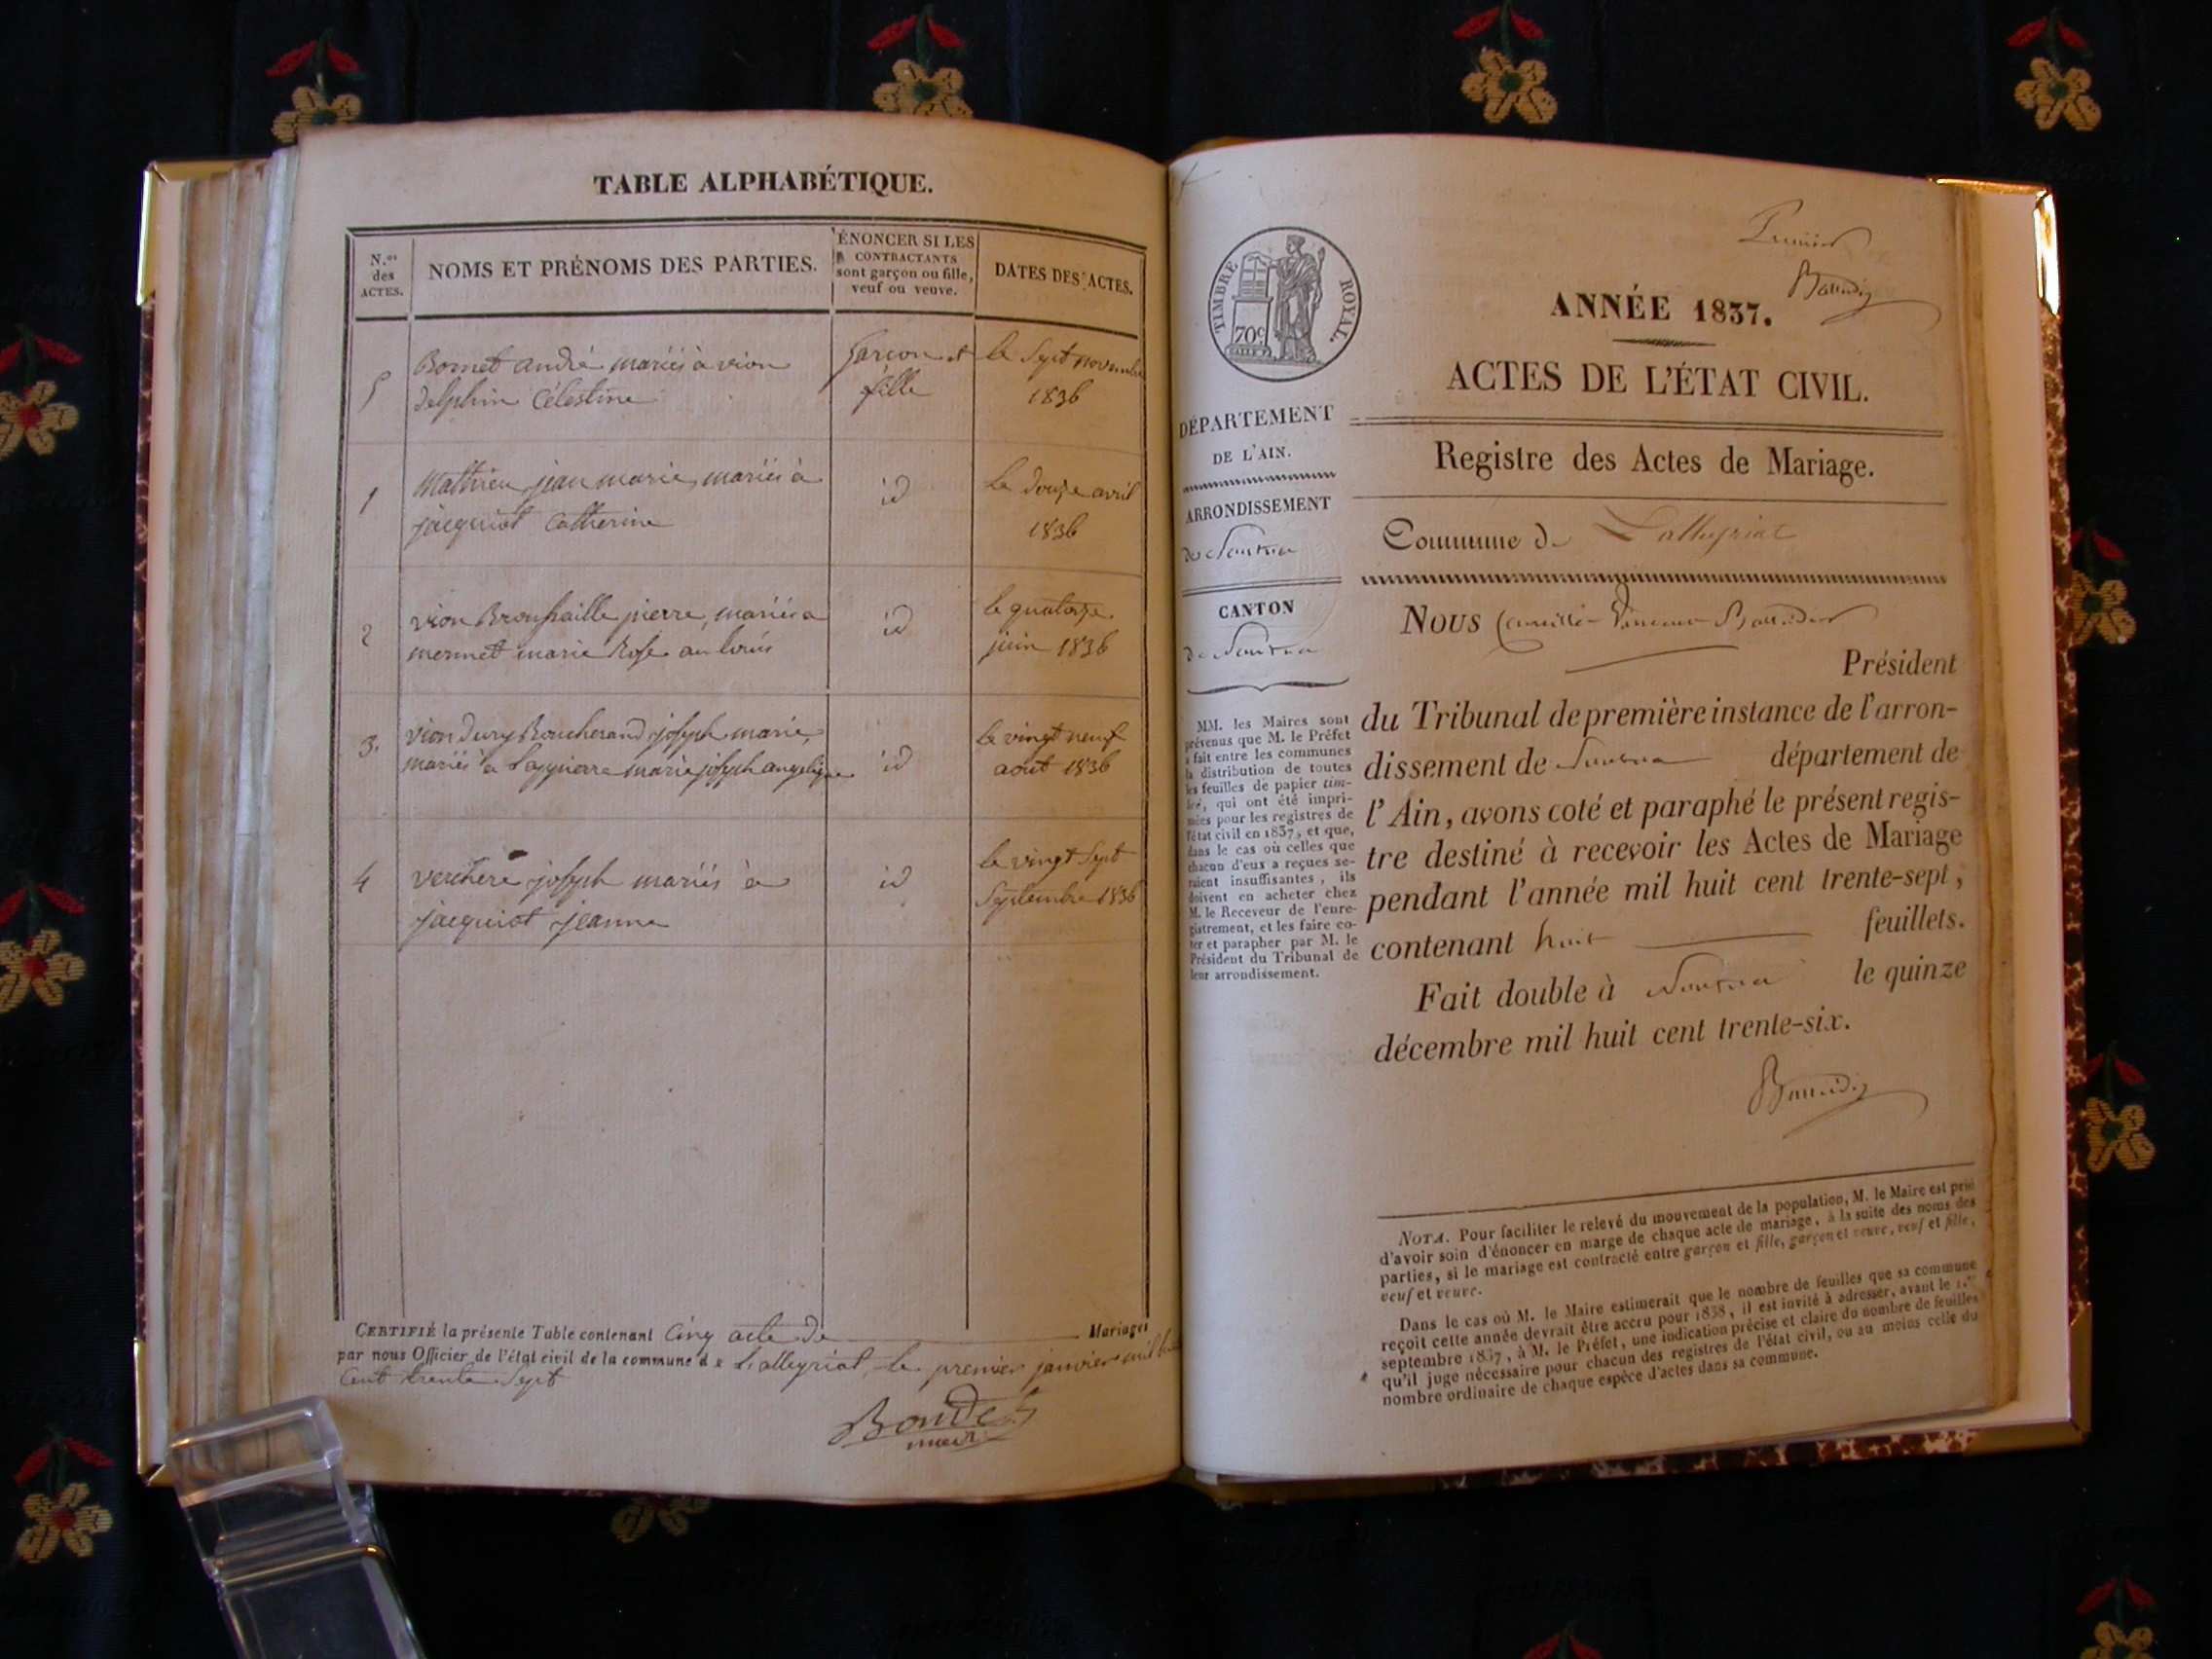 TABLE ALPHABÉTIQUE.
N.os des ACTES.
NOMS ET PRÉNOMS DES PARTIES.
ÉNONCER SI LES CONTRACTANTS sont garçon ou fille, veuf ou veuve.
DATES DES ACTES.
5 Bornet andré mariés à vion garcon et le Sept novembre
delphin Célestine fille 1836
1 Mathieu jean marie, mariés à id le douze avril
jacquiot Catherine 1836
2 vion Broussaille pierre, mariés a id le quatorze
mermet marie Rose au louis juin 1836
3. vion dury Boucherand joseph marie, id le vingt neuf
mariés a Lapierre marie joseph angelique août 1836
4 verchere joseph mariés à id le vingt Sept
jacquiot jeanne Septembre 1836
CERTIFIÉ la présente Table contenant Cinq acte de Mariages
par nous Officier de l'état civil de la commune de Lalleyriat, le premier janvier mil huit
Cent trente Sept
Bondet
maire
Premier
TIMBRE ROYAL.
70c
ANNÉE 1837.
ACTES DE L'ÉTAT CIVIL.
Registre des Actes de Mariage.
DÉPARTEMENT
DE L'AIN.
ARRONDISSEMENT
de Nantua
CANTON
de Nantua
MM. les Maires sont
prévenus que M. le Préfet
a fait entre les communes
la distribution de toutes
les feuilles de papier tim-
bré, qui ont été impri-
mées pour les registres de
l'état civil en 1837, et que,
dans le cas où celles que
chacun d'eux a reçues se-
raient insuffisantes, ils
doivent en acheter chez
M. le Receveur de l'enre-
gistrement, et les faire co-
ter et parapher par M. le
Président du Tribunal de
leur arrondissement.
Commune de Lalleyriat
Nous Camille-Vincent
Président
du Tribunal de première instance de l'arron-
dissement de Nantua département de
l'Ain, avons coté et paraphé le présent regis-
tre destiné à recevoir les Actes de Mariage
pendant l'année mil huit cent trente-sept,
contenant huit feuillets.
Fait double à Nantua le quinze
décembre mil huit cent trente-six.
NOTA. Pour faciliter le relevé du mouvement de la population, M. le Maire est prié
d'avoir soin d'énoncer en marge de chaque acte de mariage, à la suite des noms des
parties, si le mariage est contracté entre garçon et fille, garçon et veuve, veuf et fille,
veuf et veuve.
Dans le cas où M. le Maire estimerait que le nombre de feuilles que sa commune
reçoit cette année devrait être accru pour 1838, il est invité à adresser, avant le 1.er
septembre 1837, à M. le Préfet, une indication précise et claire du nombre de feuilles
qu'il juge nécessaire pour chacun des registres de l'état civil, ou au moins celle du
nombre ordinaire de chaque espèce d'actes dans sa commune.